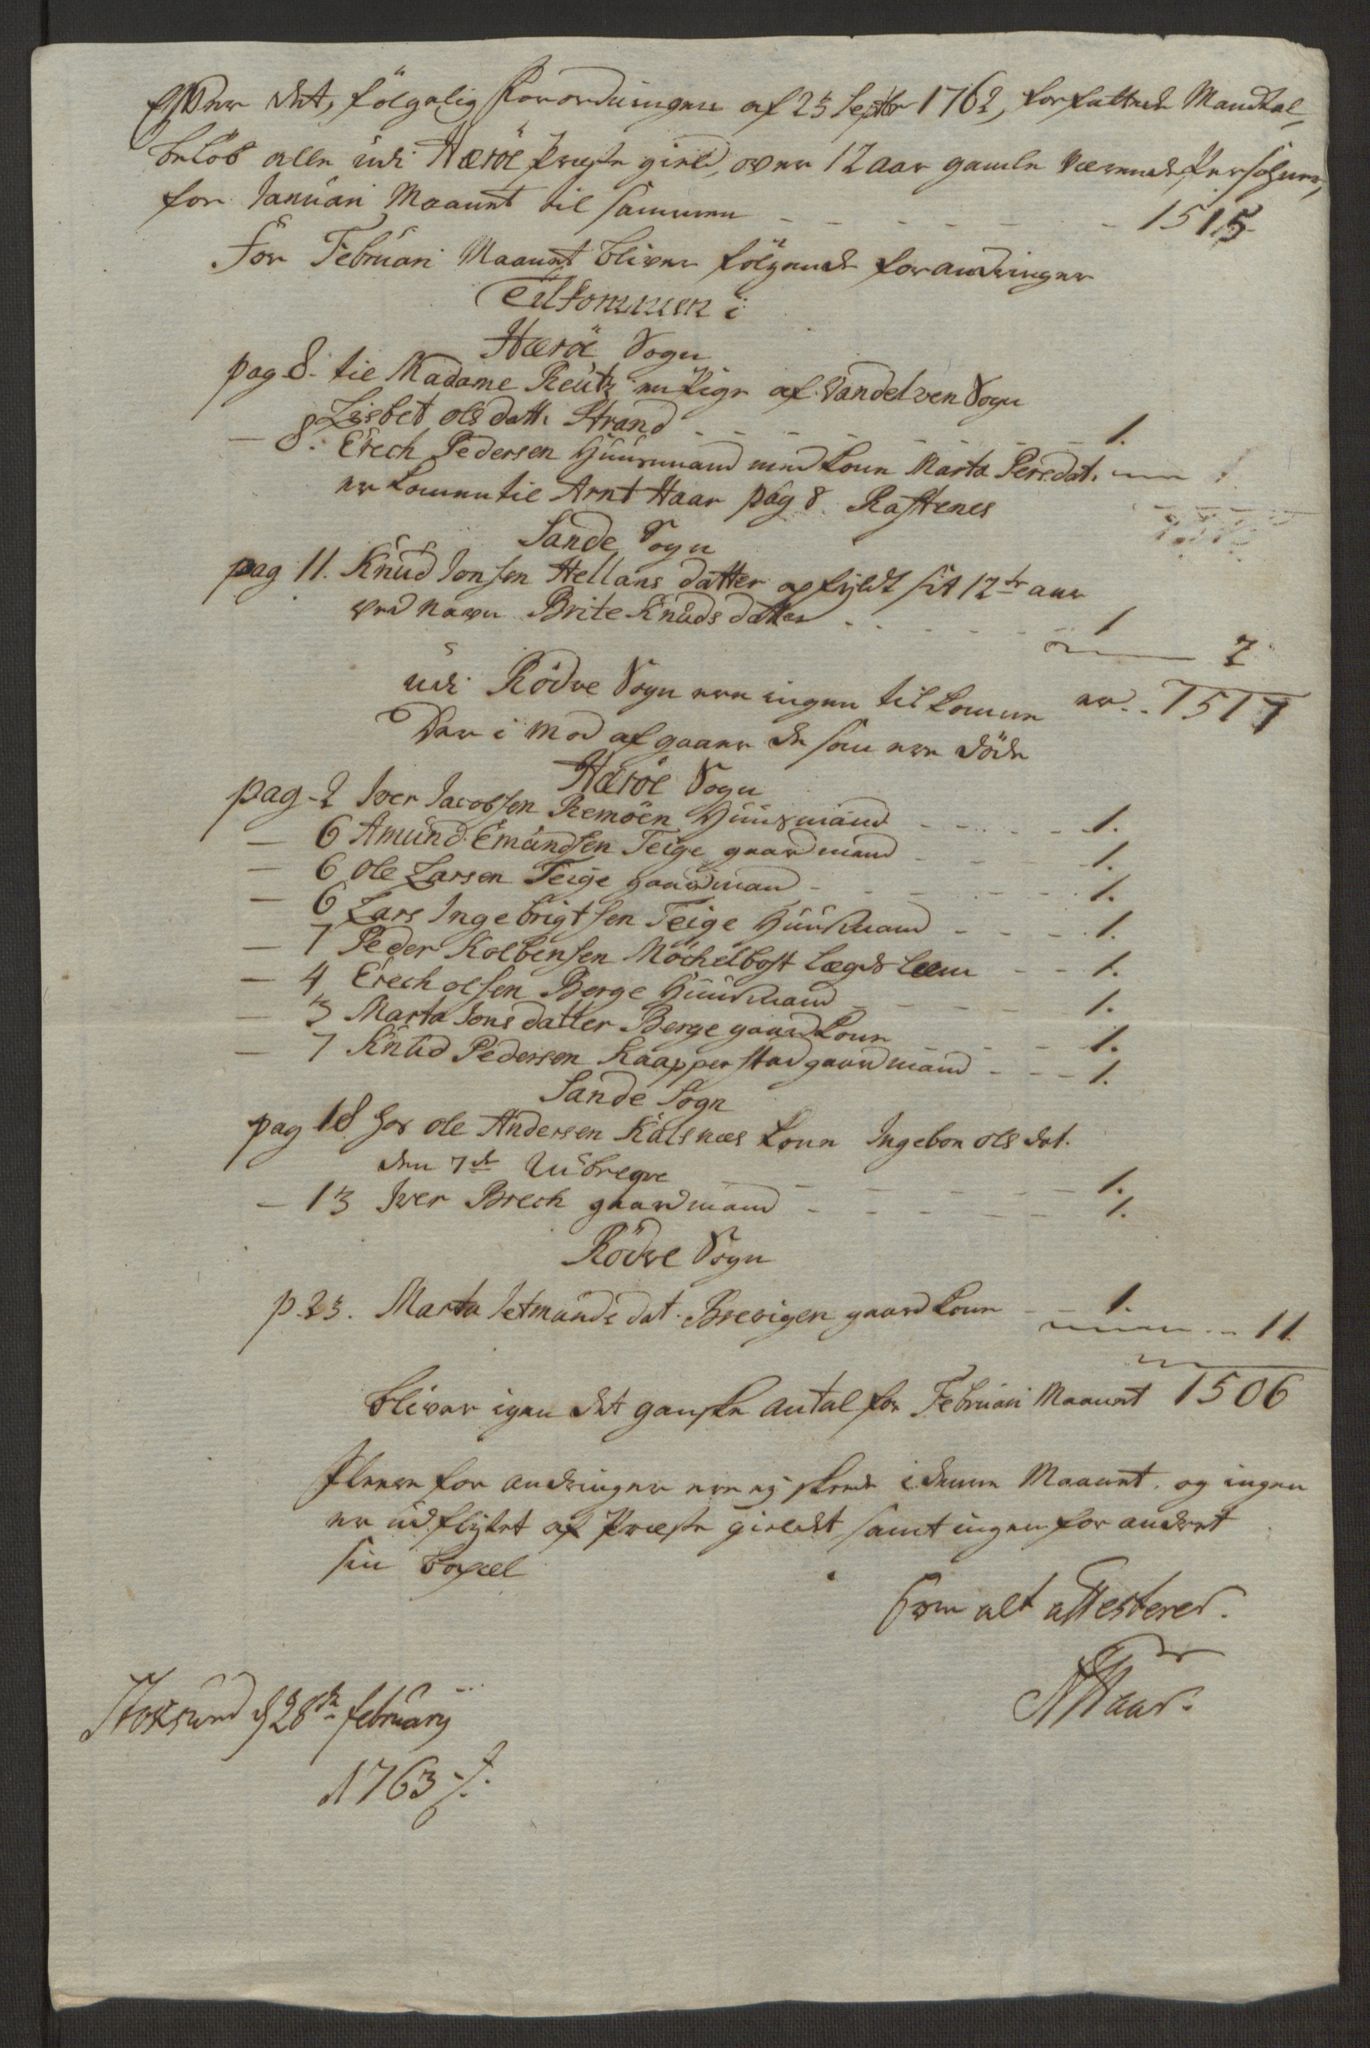 Efter det, fölgelig Forordningen af 23 Septbr 1762, forfattede Mandtal,
beløb alle udi Herröe Præste gield, over 12 aar gamle værende Persohner,
for Januari Maanet til sammen - - - - - - 1515
For Februari Maanet bliver fölgende forandringer
Tilkommen i
Heröe Sogn
pag. 8. til Madame Reutz en Pige af Vandelven Sogn
Lisbet olsdatt. Strand - - - - - - 1.
- 8. Erech Pedersen Huusmand med kone Marta Persdat.  1.
er kommen til Arnt Haar pag 8 Raftenes
Sande Sogn
pag 11. Knud Jonsen Hellans datter opfyldt sit 12te aar
ved navn Brite Knudsdatter - - - - - 1
2
udi Rödve Sogn ere ingen til komne er.. 1517
Der i mod af gaaer de som ere döde
Heröe Sogn
pag - 2 Iver Jacobsen Remöen Huusmand - - - - 1.
- 6 Amund Emundsen Teige gaardmand - - - - 1.
- 6 Ole Larsen Teige gaardmand - - - - 1.
- 6 Lars Ingebrigtsen Teige Huusmand - - - - 1.
- 7 Peder Kolbensen Möchelbost Lægdslem - - 1.
- 4 Erech olsen Berge Huusmand - - - - 1.
- 3 Marta Jonsdatter Berge gaardkone - - - 1.
- 7 Knud Pedersen Kaapperstad gaardmand - - - 1.
Sande Sogn
pag 18 hos Ole Andersen Kalsnæs kone Ingebor olsdat.
den 7de - - - - - 1.
- 13 Iver Brech gaardmand - - - - - 1.
Rödve Sogn
p. 23. Marta Jetmundsdat. Brevigen gaardkone - - 1.
11.
bliver igen det ganske antal for Februari Maanet 1506
Fleere forandringer ere ej skeed i denne Maanet, og ingen
er udflyttet af Præste gieldet samt ingen forandret
sin bopæl
Som alt attesterer.
A Haar.
Stoksund d 28de february
1763 ./.